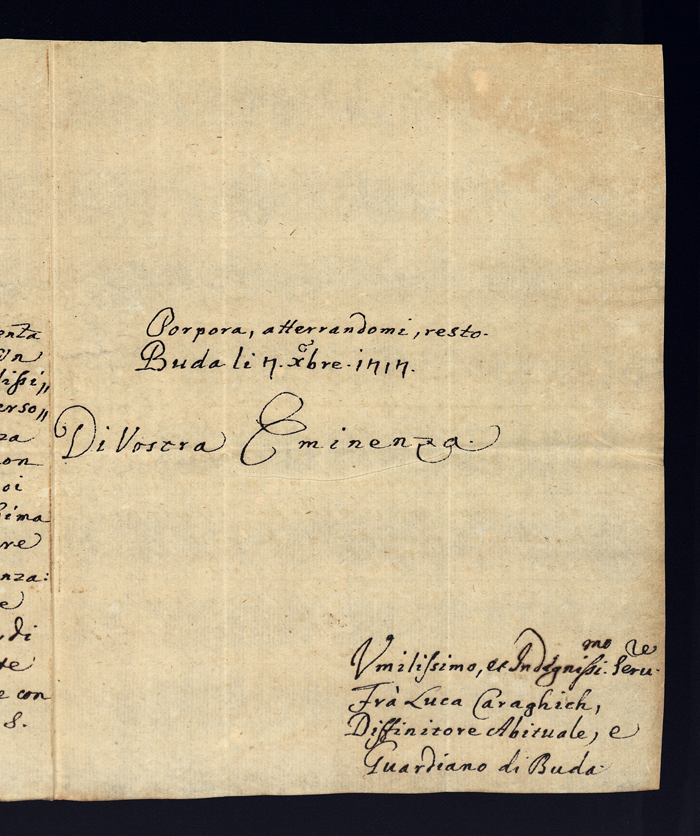 enta
Un
lissi„
erso„
za
on
oi
sima
re
nza:
e
, di
te
e con
S.
Porpora, atterrandomi, resto.
Buda li 7. Xbre. 1717.
Di Vostra Eminenza.
Vmilissimo, et Indegnissi.mo Seru.re
Frà Luca Caraghich,
Diffinitore Abituale, e
Guardiano di Buda